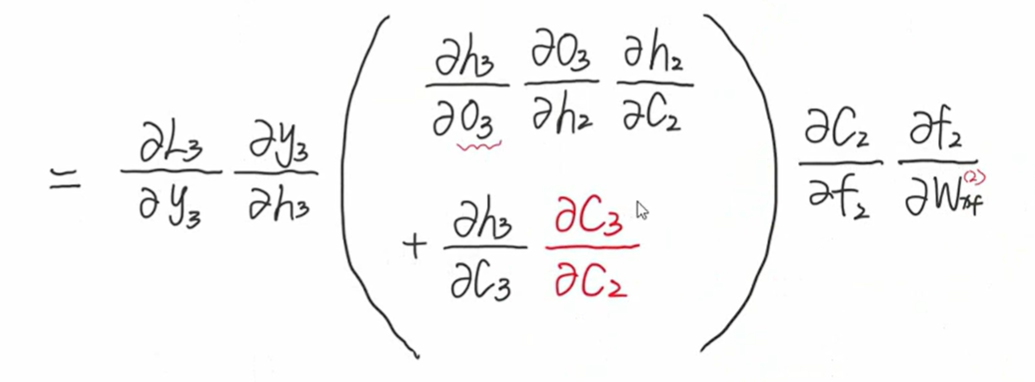 = ∂L₃/∂y₃ ∂y₃/∂h₃ ( ∂h₃/∂O₃ ∂O₃/∂h₂ ∂h₂/∂C₂
+ ∂h₃/∂C₃ ∂C₃/∂C₂ ) ∂C₂/∂f₂ ∂f₂/∂W_xf^(2)